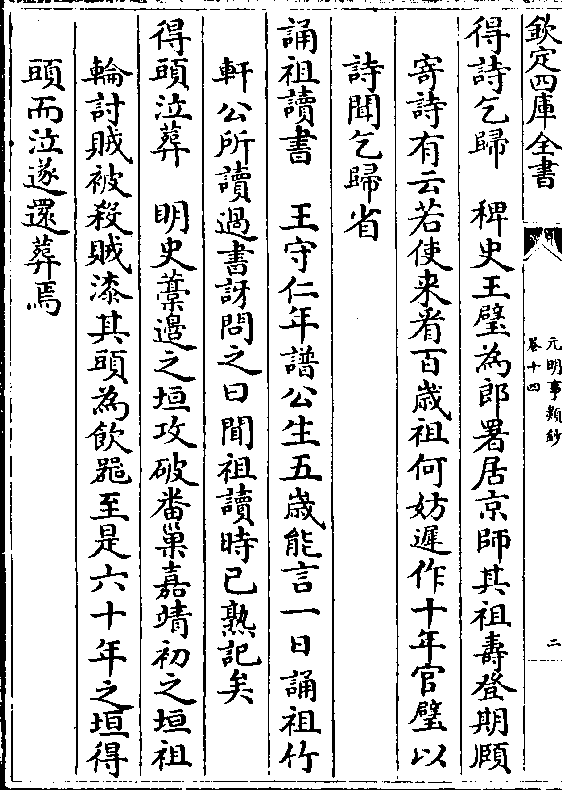 欽定四庫全書
元明事類鈔
卷十四
二
得詩乞歸　稗史王璧為郎署居京師其祖壽登期頤
寄詩有云若使来看百歳祖何妨遲作十年官璧以
詩聞乞歸省
誦祖讀書　王守仁年譜公生五歳能言一日誦祖竹
軒公所讀過書訝問之曰聞祖讀時已熟記矣
得頭泣葬　明史藁邉之垣攻破畨巢嘉靖初之垣祖
輪討賊被殺賊漆其頭為飲噐至是六十年之垣得
頭而泣遂還葬焉